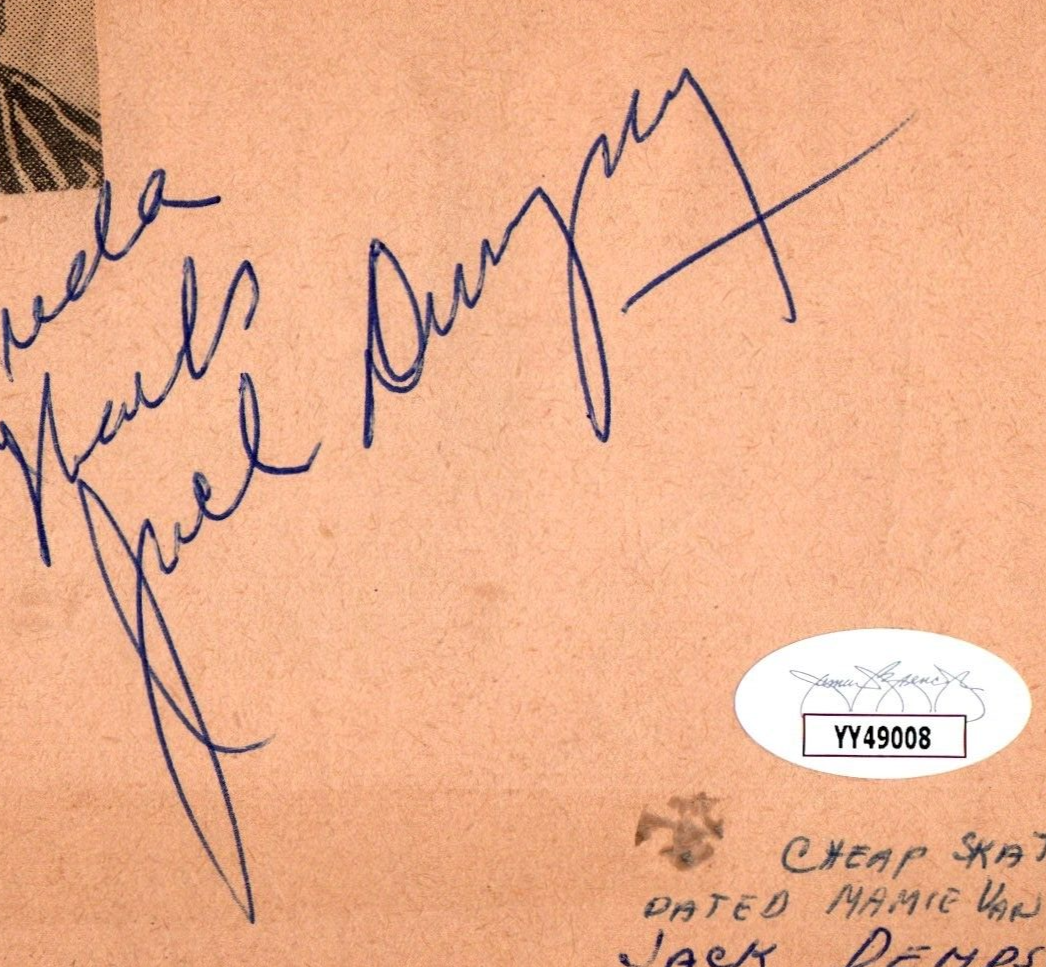 Jack Dempsey
YY49008
CHEAP SKAT
DATED MAMIE VAN
JACK DEMPS